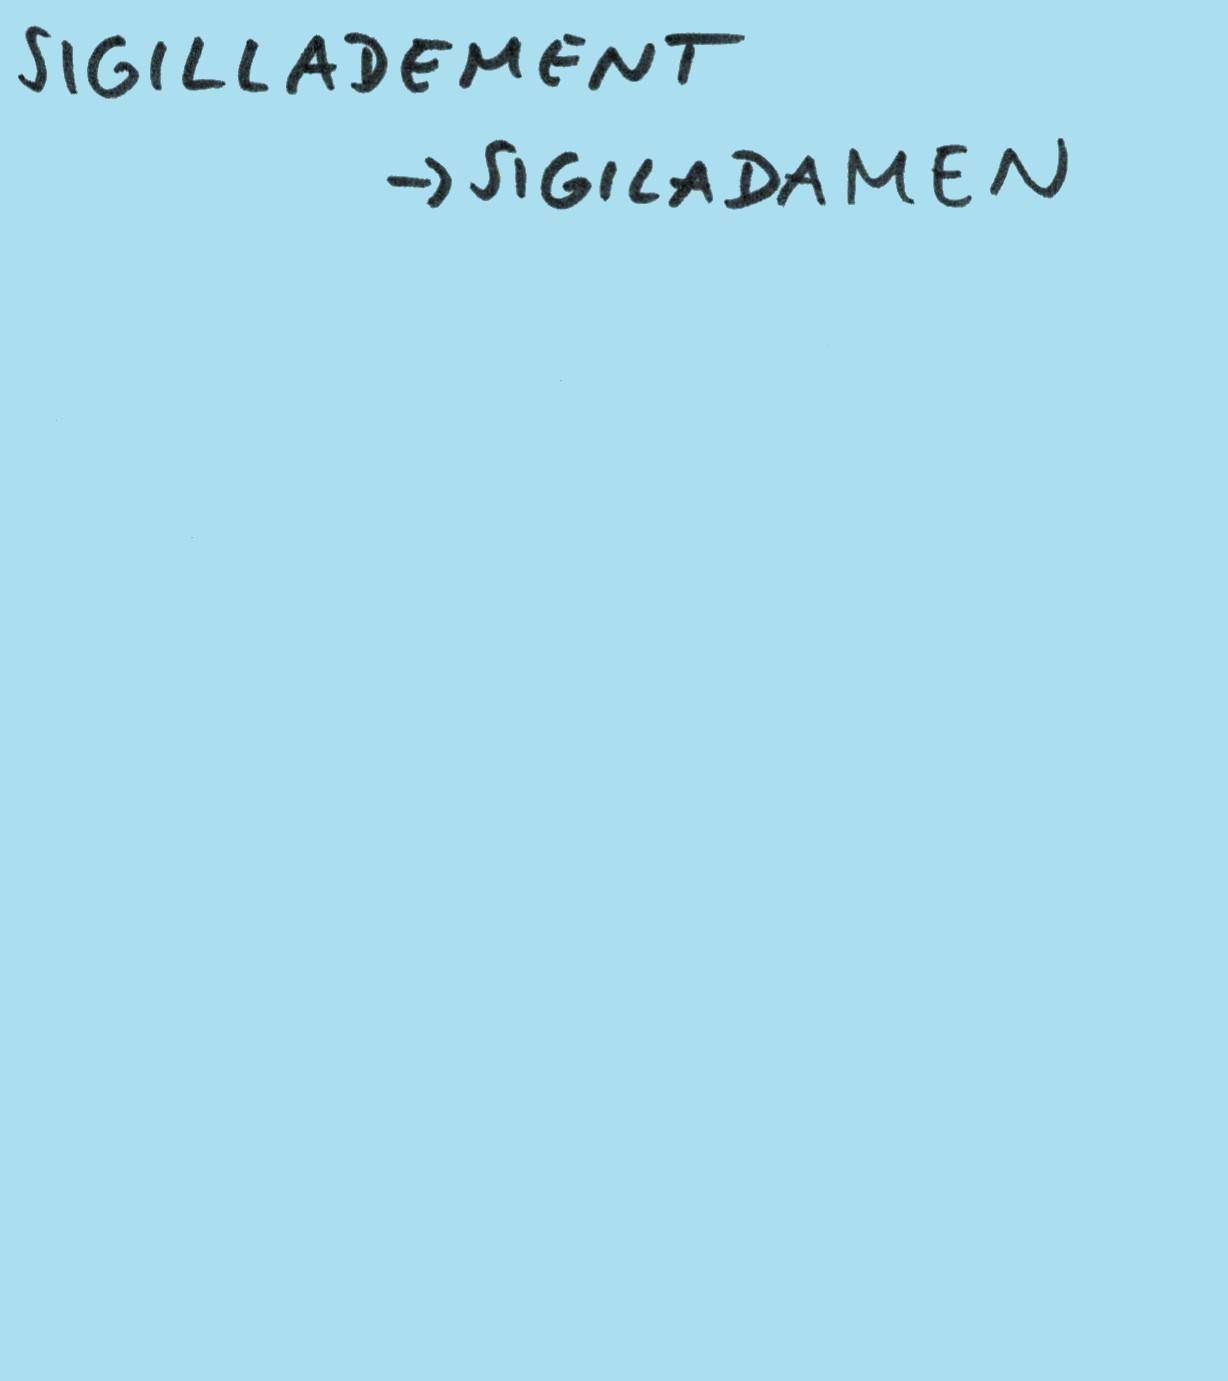 SIGILLADEMENT
→ SIGILADAMEN